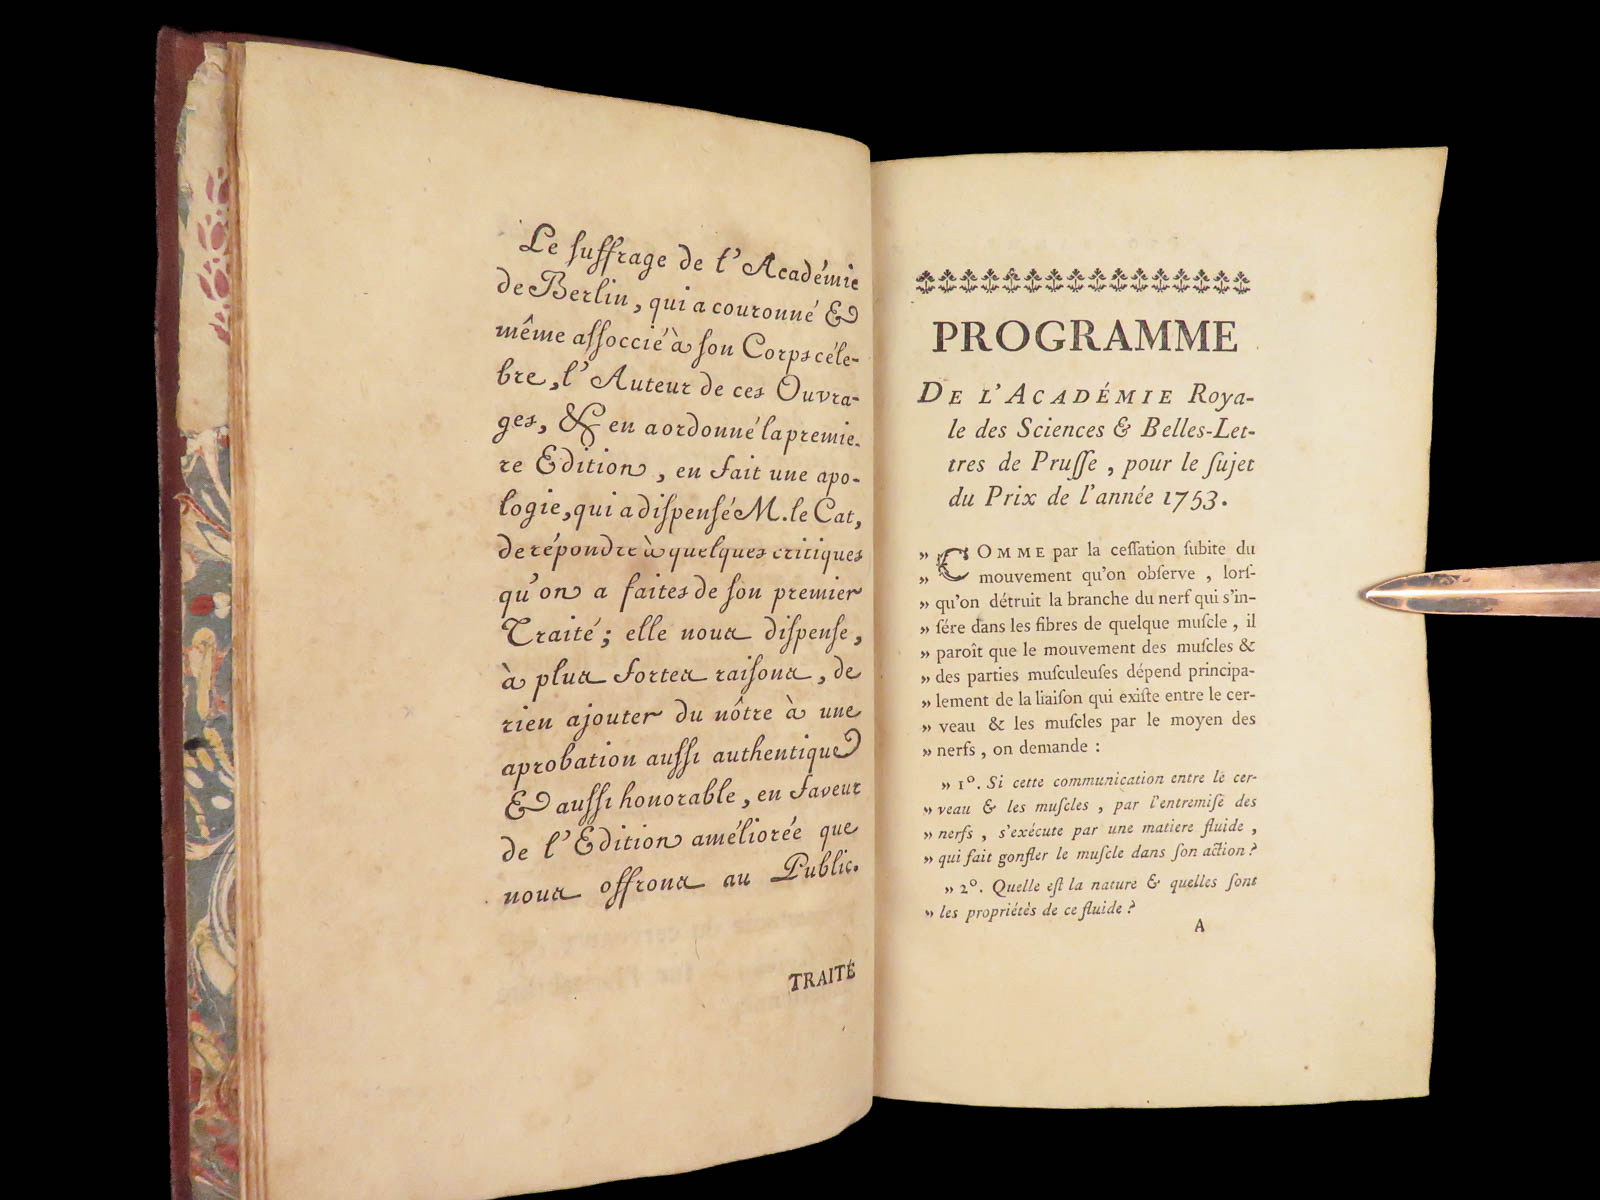 Le ſuffrage de l'Académie
de Berlin, qui a couronné &
même aſſoccié à ſon Corps céle-
bre, l'Auteur de ces Ouvra-
ges, & en a ordonné la premie-
re Edition, en fait une apo-
logie, qui a diſpenſé M. le Cat,
de répondre à quelques critiques
qu'on a faites de ſon premier
Traité; elle nous diſpense,
à plus fortes raiſons, de
rien ajouter du nôtre à une
aprobation auſſi authentique
& auſſi honorable, en faveur
de l'Edition améliorée que
nous offrons au Public.
TRAITÉ
PROGRAMME
DE L'ACADÉMIE Roya-
le des Sciences & Belles-Let-
tres de Pruſſe, pour le ſujet
du Prix de l'année 1753.
» COMME par la ceſſation ſubite du
» mouvement qu'on obſerve, lorſ-
» qu'on détruit la branche du nerf qui s'in-
» ſére dans les fibres de quelque muſcle, il
» paroît que le mouvement des muſcles &
» des parties muſculeuſes dépend principa-
» lement de la liaiſon qui exiſte entre le cer-
» veau & les muſcles par le moyen des
» nerfs, on demande :
» 1°. Si cette communication entre le cer-
» veau & les muſcles, par l'entremiſe des
» nerfs, s'exécute par une matiere fluide,
» qui fait gonfler le muſcle dans ſon action?
» 2°. Quelle eſt la nature & quelles ſont
» les propriétés de ce fluide?
A